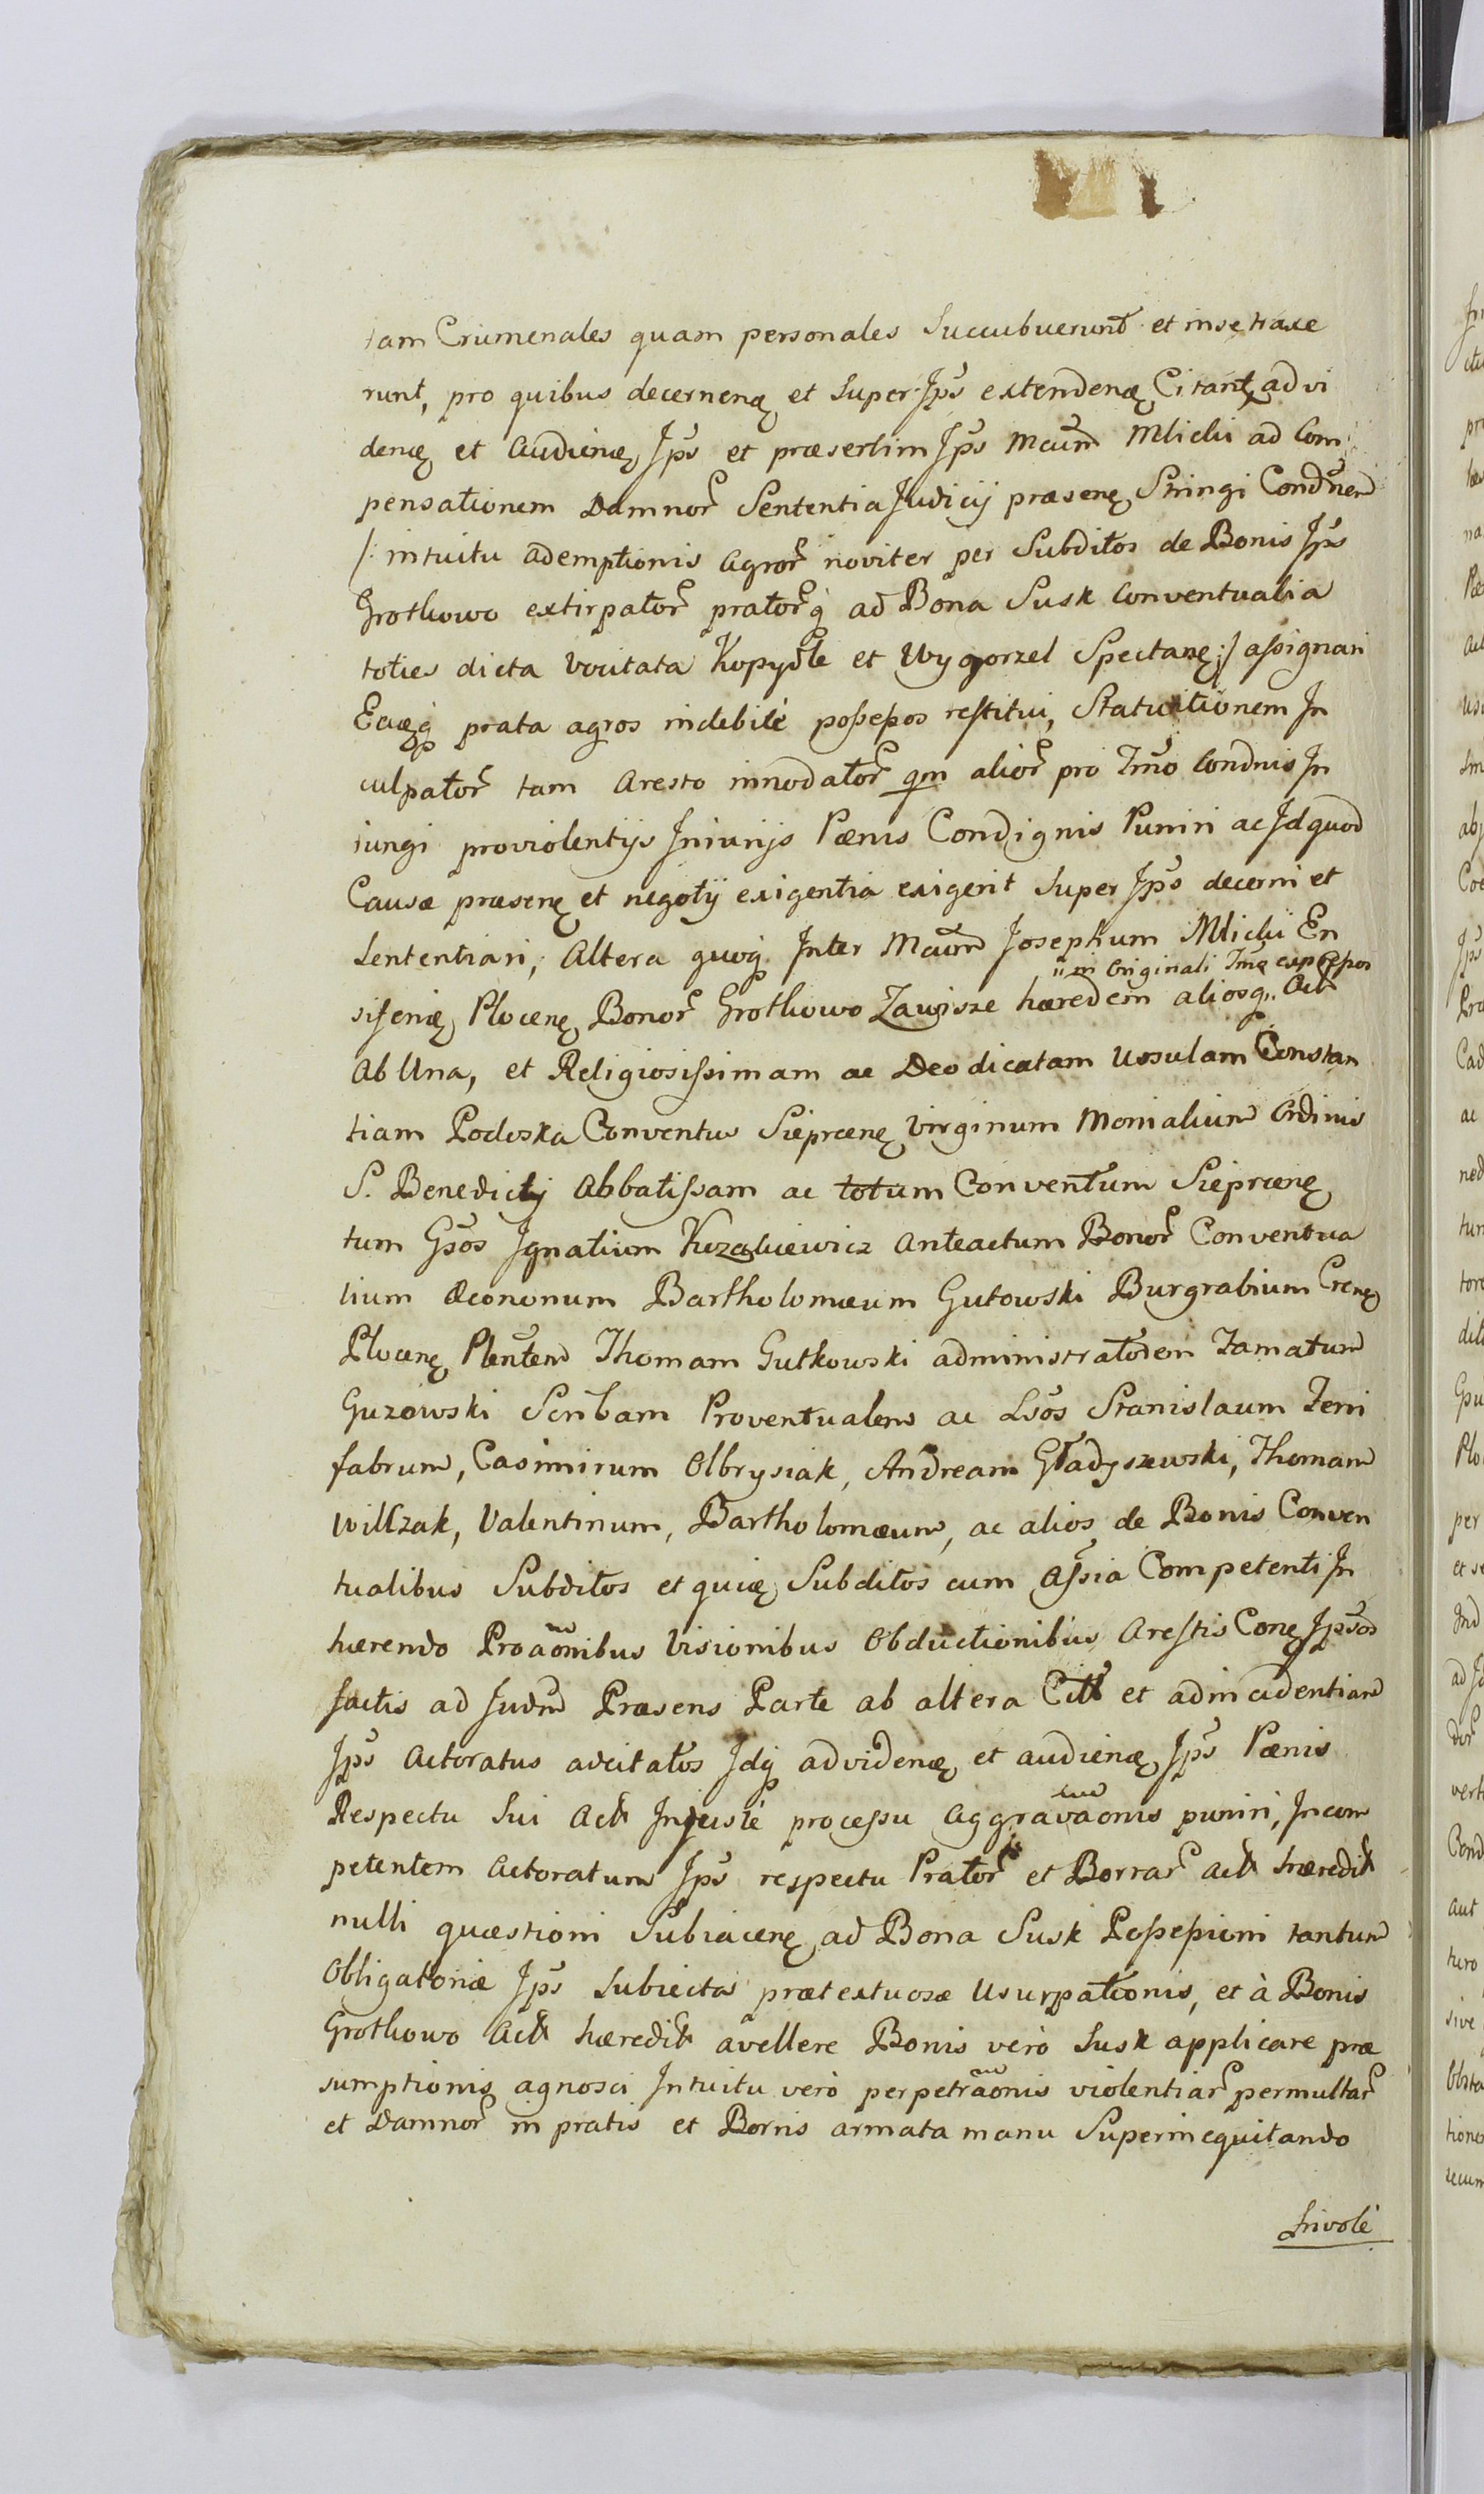 tam Criminales quam personales Succubuerunt et in se traxe
runt, pro quibus decernenę et Super Jp̃s extendenę Citant, ad vi
denę et Audienę Jp̃s et præsertim Jp̃s Mcum̃ Mlicki ad Com
pensationem Damnor̃ Sententia Judicij præsenę Stringi Condñen
/: intuitu ademptionis Agror̃ noviter per Subditos de Bonis Jp̃s
Grotkowo extirpator̃ prator̃q̃ ad Bona Susk Conventualia
toties dicta vocitata Kopydłe et Wygorzel Spectanę :/ assignari
Eaęq̃ prata agros indebité possessos restitui, Statuitionem In
culpator̃ tam Aresto innodator̃ qm alior̃ pro Tm̃o Condnis In
iungi pro violentijs Iniurijs Pœnis Condignis Puniri ac Id quod
Causæ præsenę et negotij exigentia exigerit Super Jp̃s decerni et
Sententiari; Altera quoq̃ Inter Mcum̃ Josephum Mlicki En
" in Originali Tm̃ę
siferię Plocenę Bonor̃ Grotkowo Zawisze hæredem aliosq„ Act̃
Ab Una, et Religiosissimam ac Deo dicatam Ursulam Constan
tiam Podoska Conventus Sieprcenę Virginum Monialium Ordinis
S. Benedicti Abbatissam ac totum Conventum Sieprcenę
tum Gs̃os Ignatium Anteactum Bonor̃ Conventua
lium Œconomum Bartholomæum Gutowski Burgrabium Crenę
Plocenę Plent̃em Thomam Gutkowski administratorem
Guzowski Scribam Proventualem ac Ls̃os Stanislaum Feri
fabrum, Casimirum Olbrysiak, Andream Gładyszewski, Thomam
Wilczak, Valentinum, Bartholomæum, ac alios de Bonis Conven
tualibus Subditos et quię Subditos cum Ass̃ia Competenti In
hærendo Proãonibus Visionibus Obductionibus Arestis Conę Jps̃os
factis ad Judm̃ Præsens Parte ab altera Citt̃ et ad incidentiam
Jp̃s Actoratus adcitatos Idq̃ ad videnę et audienę Jp̃s Pœnis
Respectu Sui Act̃ Injusté processu Aggravãonis puniri, Incom
petentem Actoratum Jp̃s respectu Prator̃ et Borrar̃ act̃ hæredit̃
nulli quæstioni Subiacenę ad Bona Susk Possessioni tantum
Obligatoriæ Jp̃s Subiecta prætextuosæ Usurpationis, et à Bonis
Grotkowo Act̃ hæredit̃ avellere Bonis verò Susk applicare præ
sumptionis agnosci Intuitu verò perpetrãonis violentiar̃ permultar̃
et Damnor̃ in pratis et Borris armata manu Superinequitando
frivolé